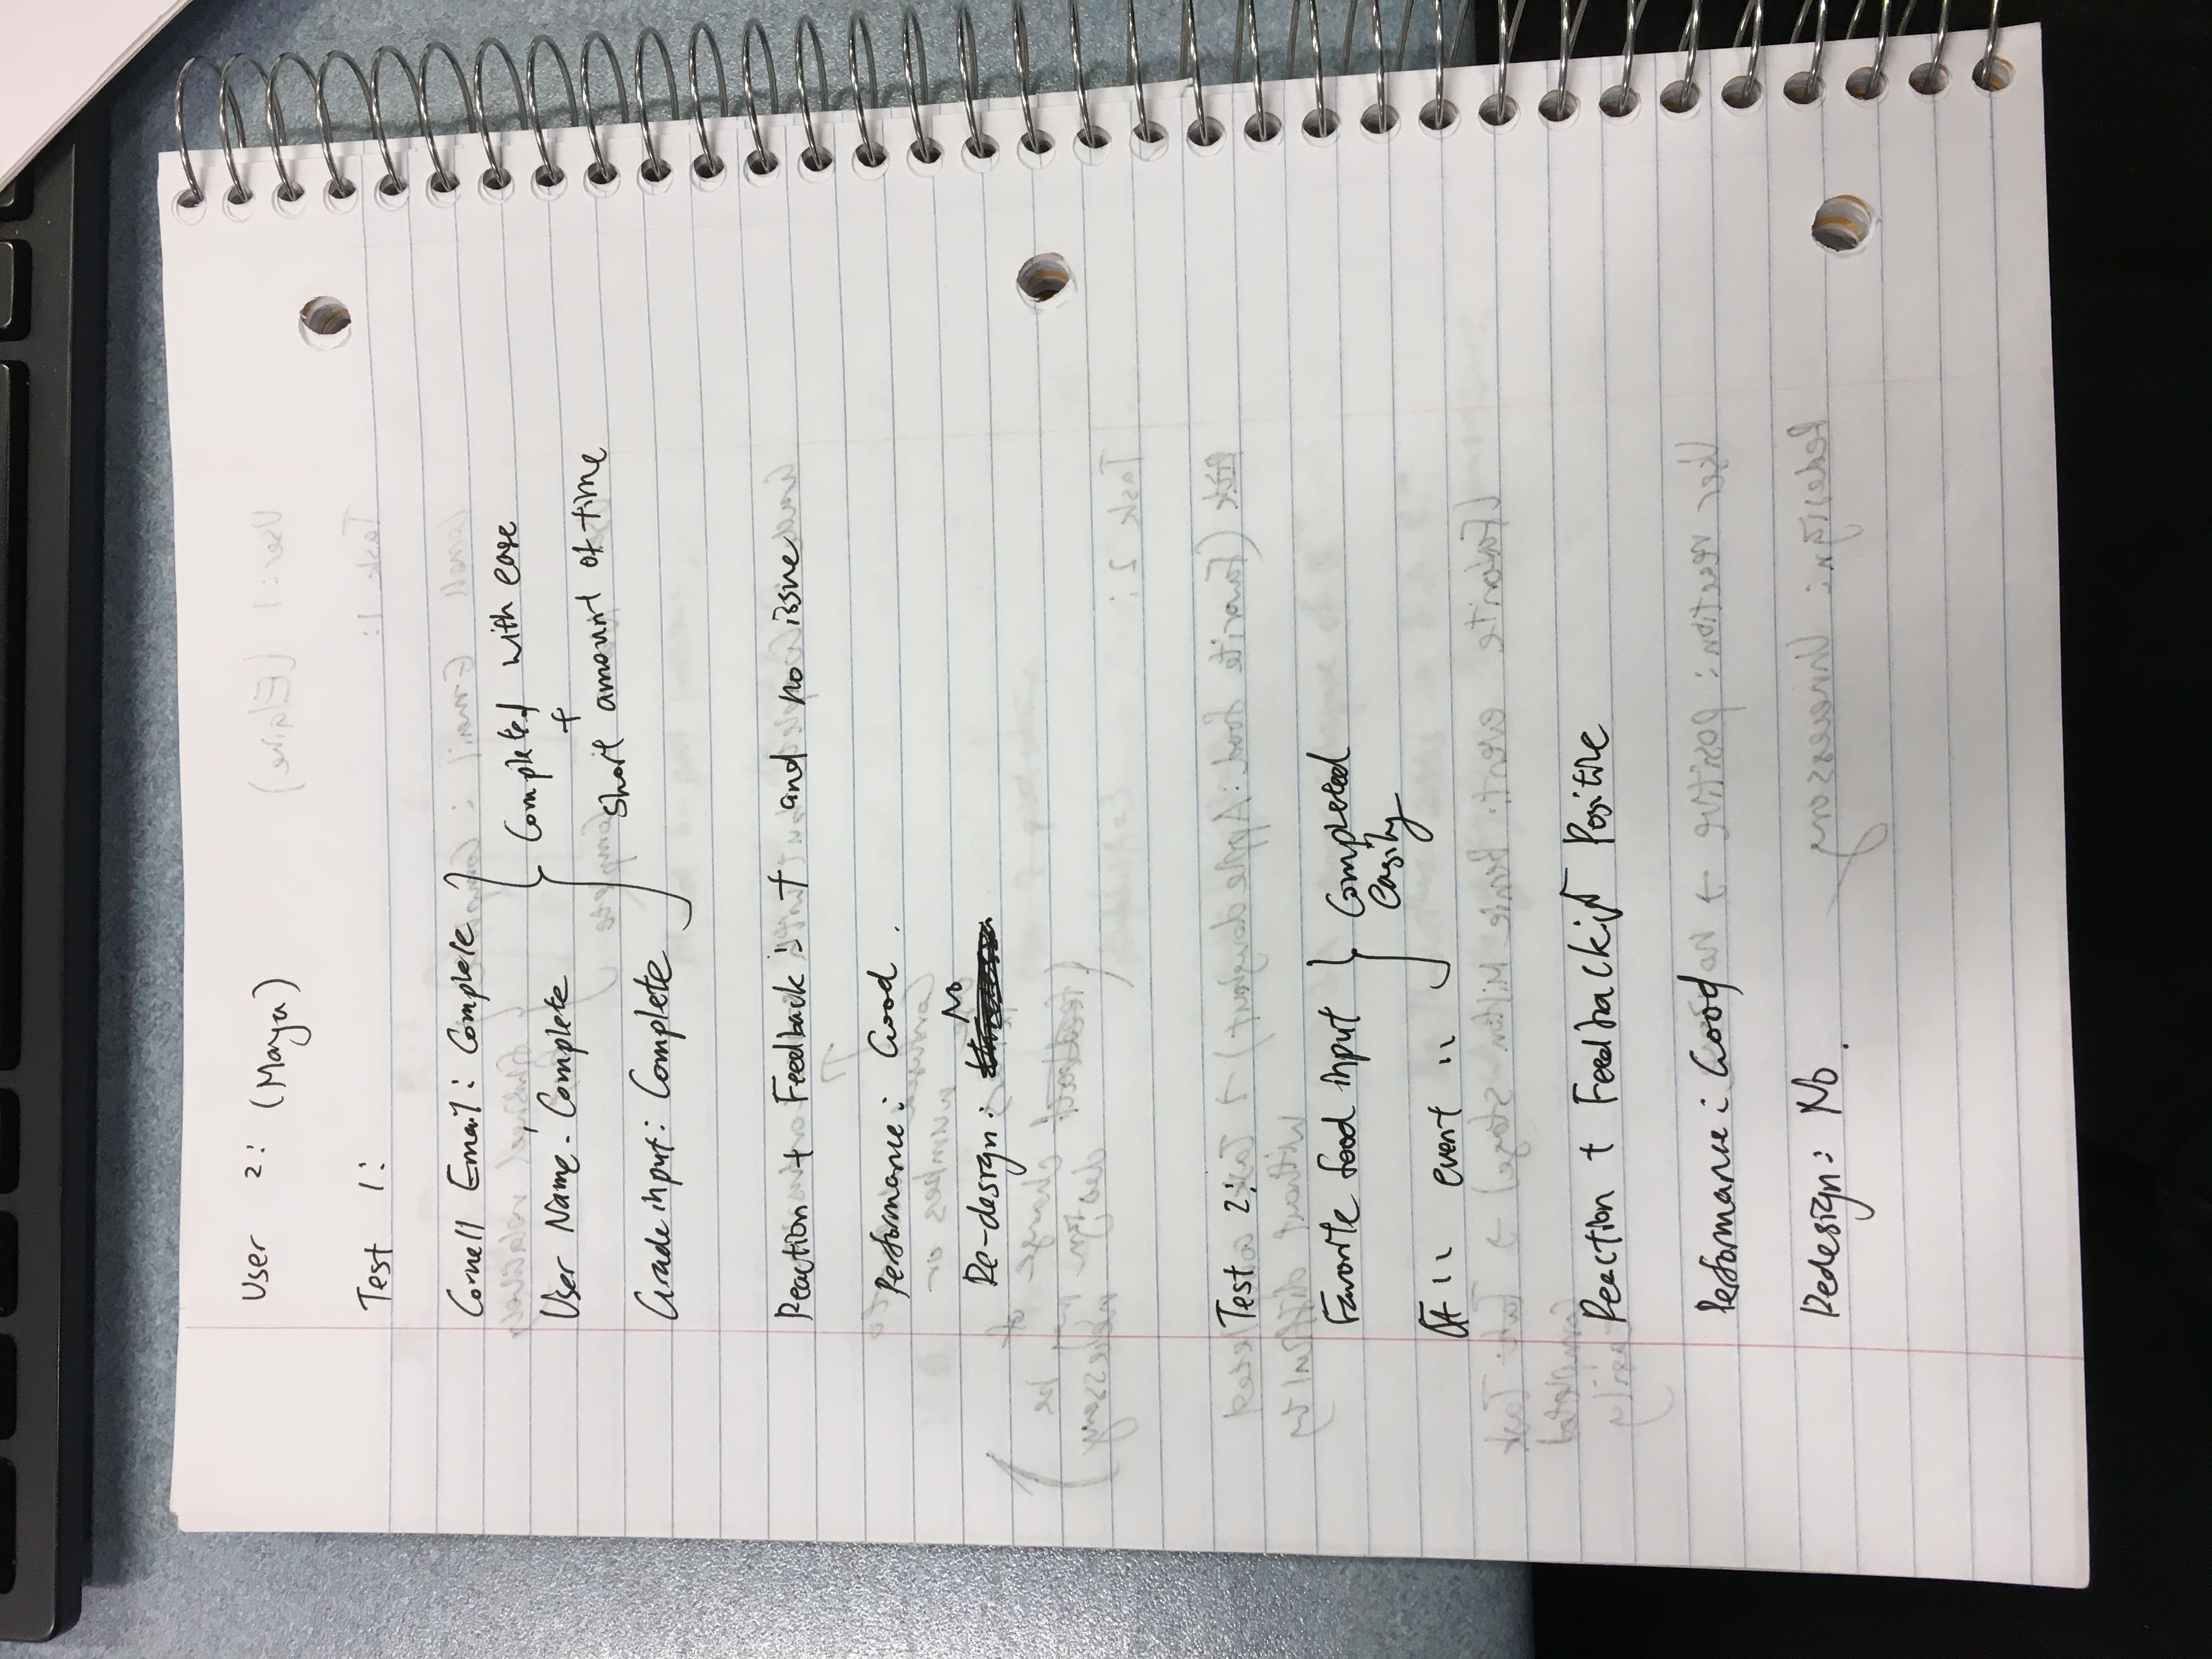 User 2: (Maya)
Test 1:
Cornell Email: Complete
User Name: Complete
Grade input: Complete
Completed with ease
+
short amount of time
Reaction + Feedback: + and no issue
Performance: Good.
No
Re-design:
Test 2:
Favorite food input
" event "
Completed
easily
Reaction + Feedback: Positive
Performance: Good
Redesign: No.